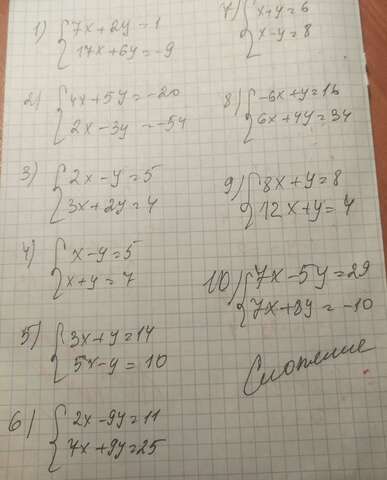 1) 7x+2y=1
17x+6y=-9
2) 4x+5y=-20
2x-3y=-54
3) 2x-y=5
3x+2y=4
4) x-y=5
x+y=7
5) 3x+y=14
5x-y=10
6) 2x-9y=11
7x+9y=25
7) x+y=6
x-y=8
8) -6x+y=16
6x+4y=34
9) 8x+y=8
12x+y=4
10) 7x-5y=29
7x+8y=-10
Сложение